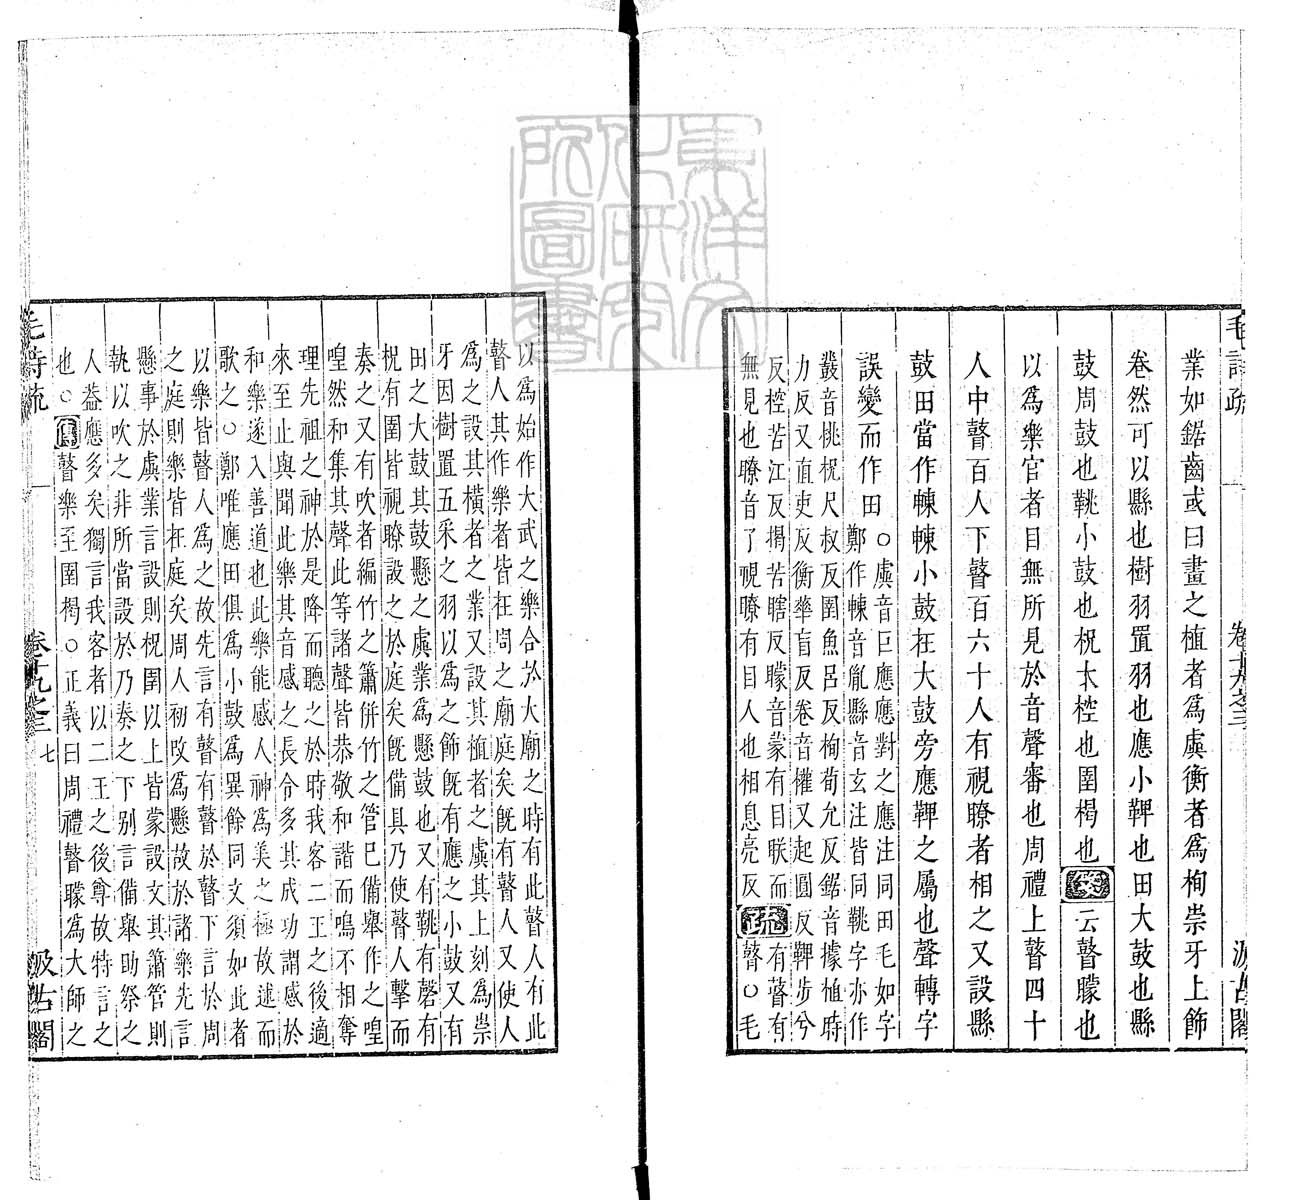 東洋文
化研究
所圖書
毛詩疏 卷十九之三 汲古閣
業如鋸齒或曰畫之植者爲虡衡者爲栒崇牙上飾
卷然可以縣也樹羽置羽也應小鞞也田大鼓也縣
鼓周鼓也鞉小鼓也柷木椌也圉楬也箋云瞽矇也
以爲樂官者目無所見於音聲審也周禮上瞽四十
人中瞽百人下瞽百六十人有視瞭者相之又設縣
鼓田當作朄朄小鼓在大鼓旁應鞞之屬也聲轉字
誤變而作田
○虡音巨應應對之應注同田毛如字
鄭作朄音胤縣音玄注皆同鞉字亦作
鼗音桃柷尺叔反圉魚呂反栒荀允反鋸音據植時
力反又直吏反衡華盲反卷音權又起圓反鞞步兮
反椌苦江反楬苦瞎反矇音蒙有目眹而
無見也瞭音了視瞭有目人也相息亮反
疏有瞽有
瞽○毛
以爲始作大武之樂合於大廟之時有此瞽人有此
瞽人其作樂者皆在周之廟庭矣旣有瞽人又使人
爲之設其橫者之業又設其植者之虡其上刻爲崇
牙因樹置五采之羽以爲之飾旣有應之小鼓又有
田之大鼓其鼓懸之虡業爲懸鼓也又有鞉有磬有
柷有圉皆視瞭設之於庭矣旣備具乃使瞽人擊而
奏之又有吹者編竹之簫併竹之管已備舉作之喤
喤然和集其聲此等諸聲皆恭敬和諧而鳴不相奪
理先祖之神於是降而聽之於時我客二王之後適
來至止與聞此樂其音感之長令多其成功謂感於
和樂遂入善道也此樂能感人神爲美之極故述而
歌之○鄭唯應田俱爲小鼓爲異餘同文須如此者
以樂皆瞽人爲之故先言有瞽有瞽於瞽下言於周
之庭則樂皆在庭矣周人初改爲懸故於諸樂先言
懸事於虡業言設則柷圉以上皆蒙設文其簫管則
執以吹之非所當設於乃奏之下别言備舉助祭之
人蓋應多矣獨言我客者以二王之後尊故特言之
也○傳瞽樂至圉楬○正義曰周禮瞽矇爲大師之
毛詩疏 卷十九之三 七 汲古閣